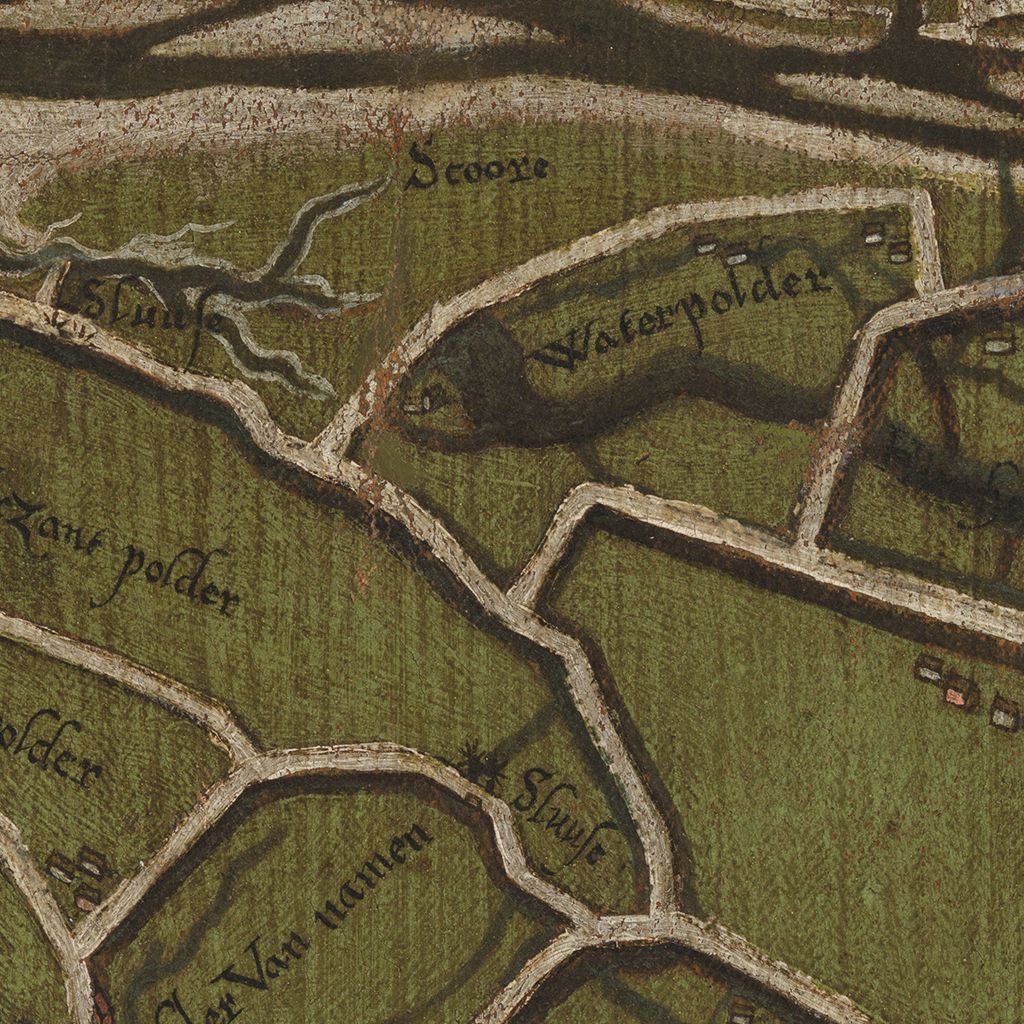 Scoore
Sluuse
Waterpolder
polder
polder
Sluuse
Van namen